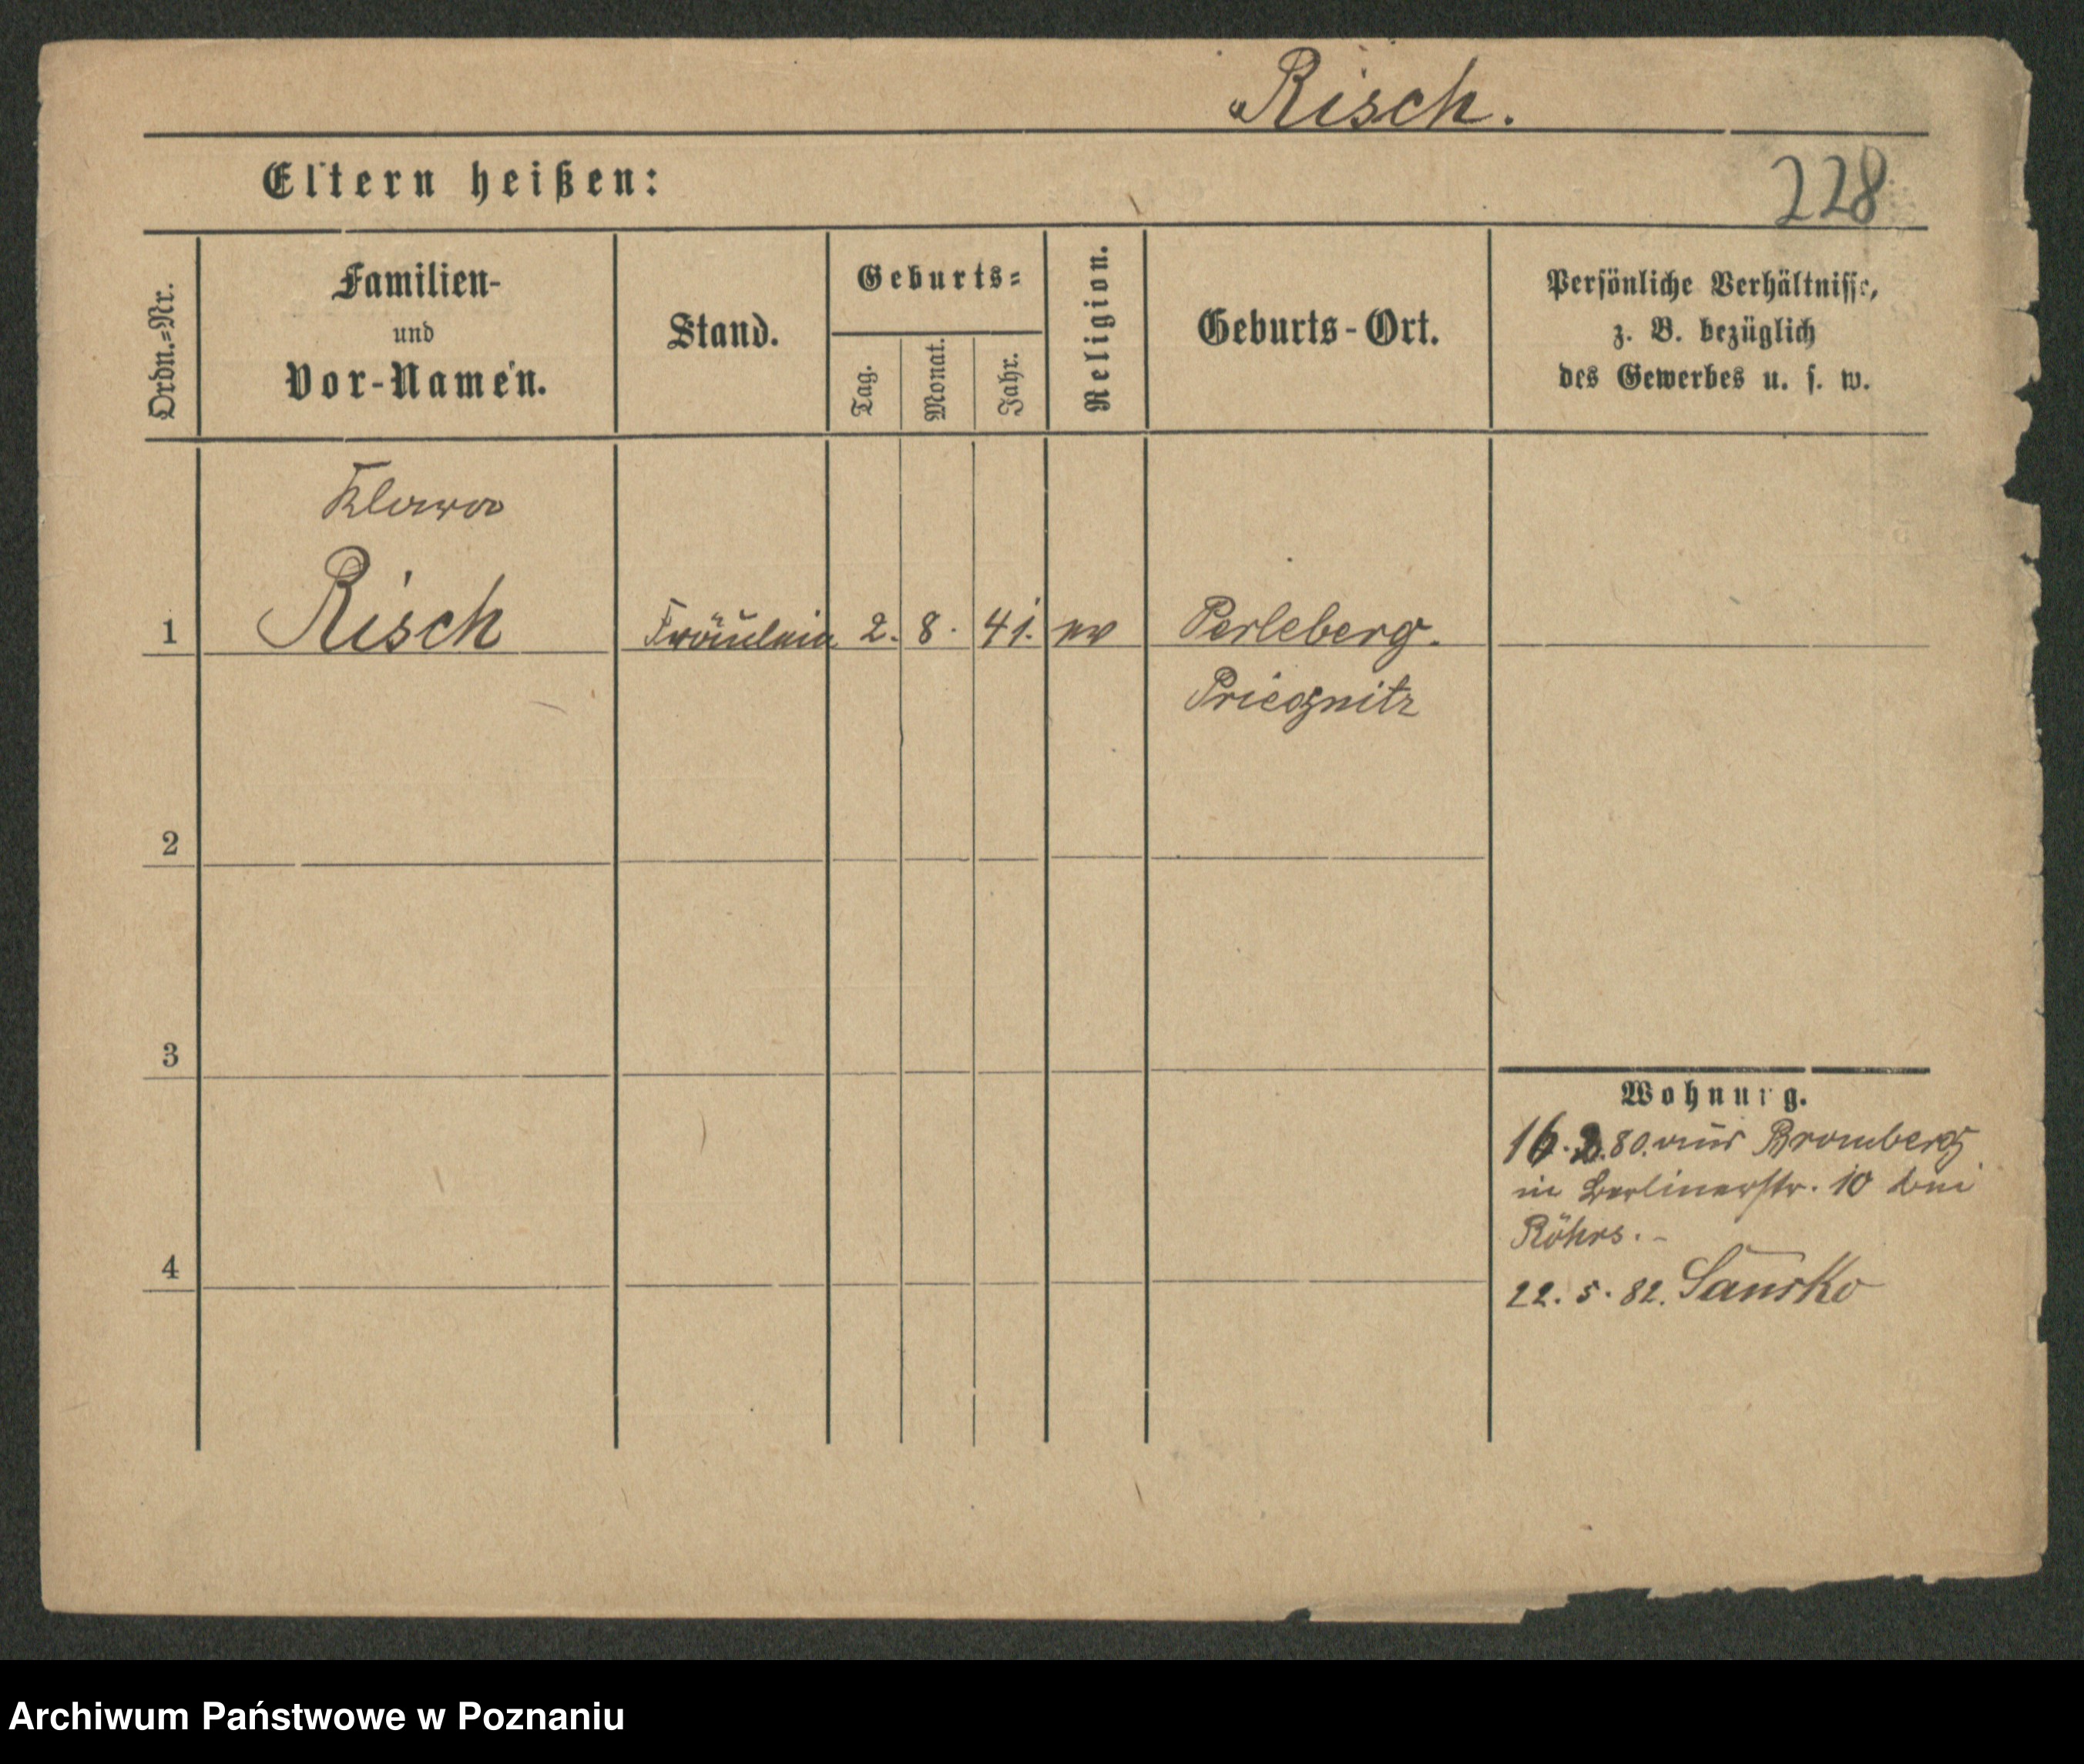 Risch.
Eltern heißen:
228
Ordn.=Nr.
Familien-
und
Vor-Namen.
Stand.
Geburts=
Tag.
Monat.
Jahr.
Religion.
Geburts-Ort.
Persönliche Verhältnisse,
z. B. bezüglich
des Gewerbes u. s. w.
Klara
1 Risch Fräulein 2. 8. 41. ev Perleberg.
Priegnitz
2
3
Wohnung.
16. 80. aus Bromberg
in Berlinerstr. 10 bei
Röhrs. -
4
22. 5. 82.
Archiwum Państwowe w Poznaniu